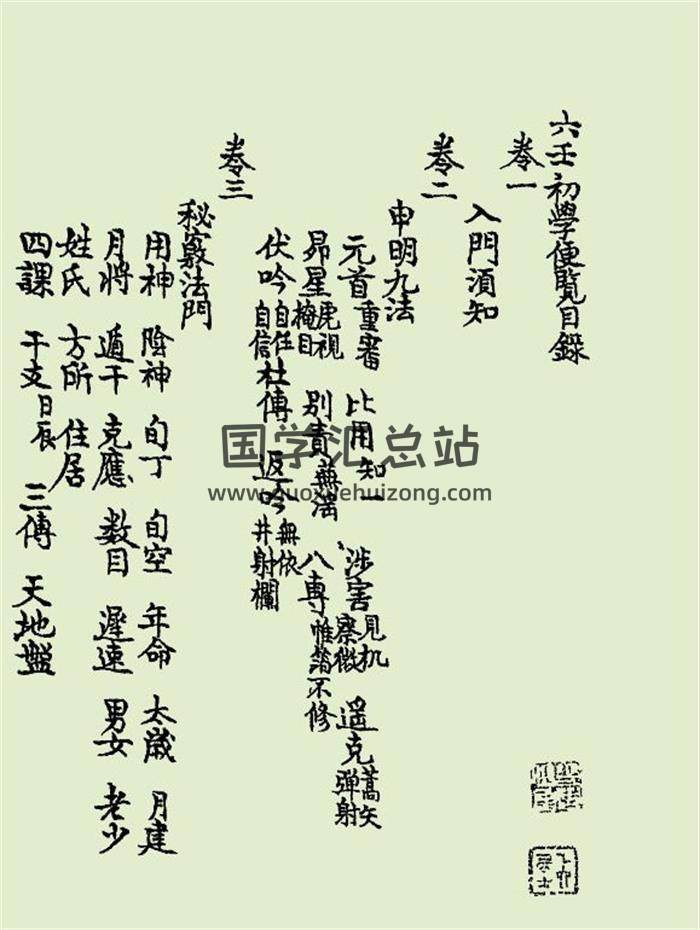 六壬初學便覧目錄
卷一
入門須知
卷二
申明九法
元首 重審 比用 知一 涉害 見机 察微 遥克 蒿矢 弹射
昴星 虎視 掩目 別責 蕪淫 八専 帷薄不修
伏吟 自任 自信 杜傳 返吟 無依 井射欄
卷三
秘竅法門
用神 陰神 旬丁 旬空 年命 太歲 月建
月將 遁干 克應 数目 遲速 男女 老少
姓氏 方所 住居
四課 干支日辰 三傳 天地盤
国学汇总站
www.guoxuehuizong.com